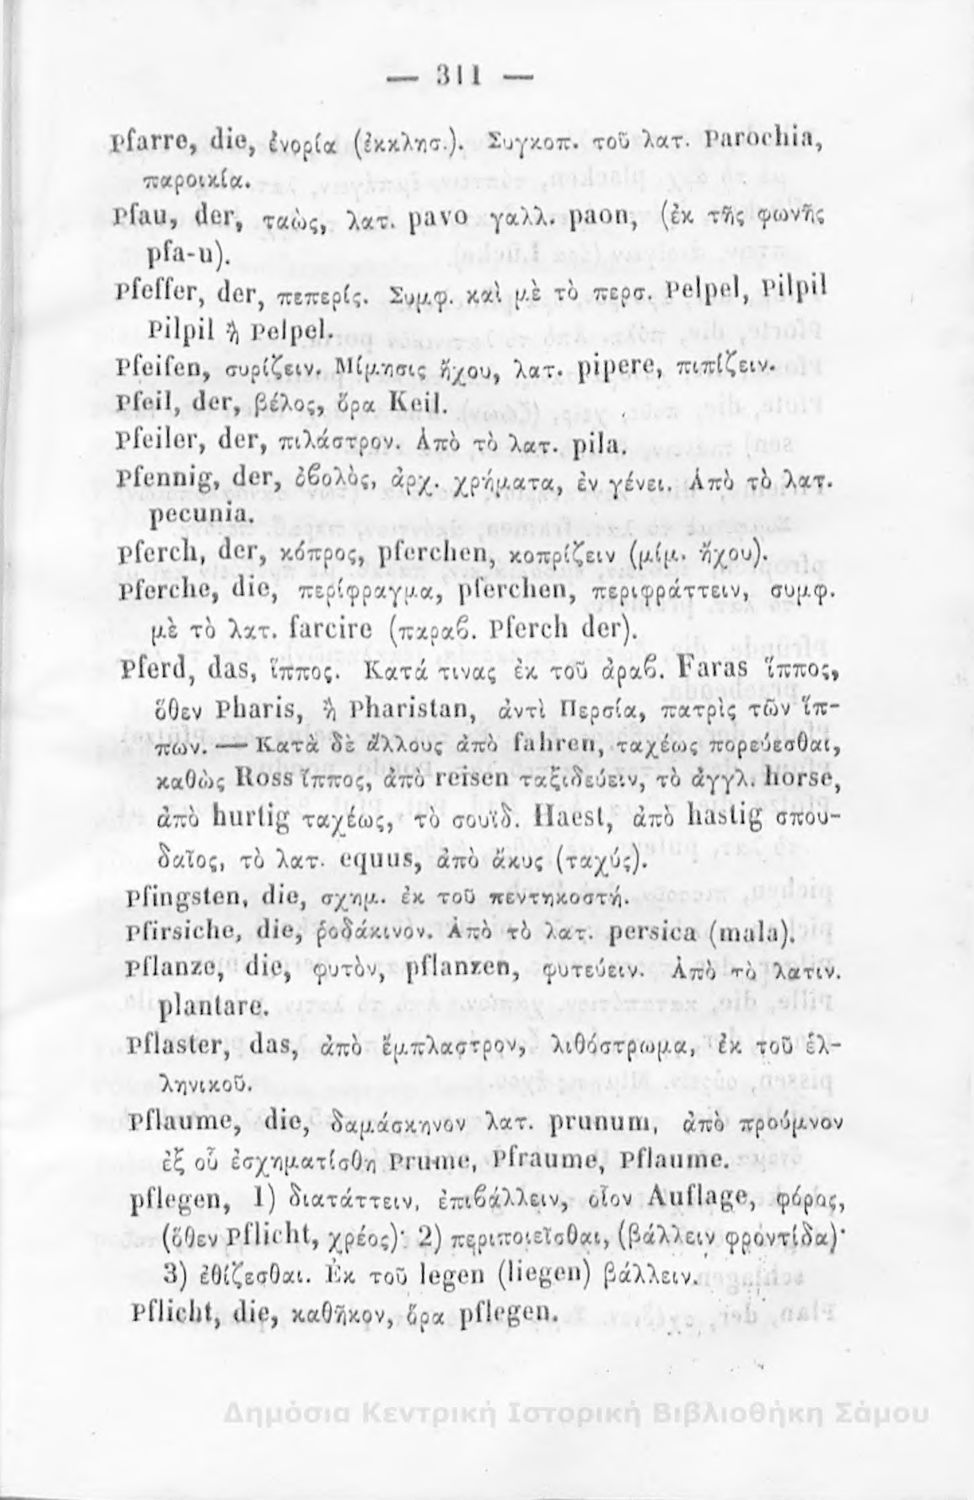 — 311 —
Pfarre, die, ἐνορία (ἐκκλησ.). Συγκοπ. τοῦ λατ. Parochia,
παροικία.
Pfau, der, ταὼς, λατ. pavo γαλλ. paon, (ἐκ τῆς φωνῆς
pfa-u).
Pfeffer, der, πεπερίς. Συμφ. καὶ μὲ τὸ περσ. Pelpel, Pilpil
Pilpil ἢ Pelpel.
Pfeifen, συρίζειν. Μίμησις ἤχου, λατ. pipere, πιπίζειν.
Pfeil, der, βέλος, ὅρα Keil.
Pfeiler, der, πιλάστρον. Ἀπὸ τὸ λατ. pila.
Pfennig, der, ὀβολὸς, ἀρχ. χρήματα, ἐν γένει. Ἀπὸ τὸ λατ.
pecunia.
Pferch, der, κόπρος, pferchen, κοπρίζειν (μίμ. ἤχου).
Pferche, die, περίφραγμα, pferchen, περιφράττειν, συμφ.
μὲ τὸ λατ. farcire (παραβ. Pferch der).
Pferd, das, ἵππος. Κατά τινας ἐκ τοῦ ἀραβ. Faras ἵππος,
ὅθεν Pharis, ἢ Pharistan, ἀντὶ Περσία, πατρὶς τῶν ἵπ-
πων. — Κατὰ δὲ ἄλλους ἀπὸ fahren, ταχέως πορεύεσθαι,
καθὼς Ross ἵππος, ἀπὸ reisen ταξιδεύειν, τὸ ἀγγλ. horse,
ἀπὸ hurtig ταχέως, τὸ σουϊδ. Haest, ἀπὸ hastig σπου-
δαῖος, τὸ λατ. equus, ἀπὸ ἄκυς (ταχύς).
Pfingsten, die, σχημ. ἐκ τοῦ πεντηκοστή.
Pfirsiche, die, ῥοδάκινον. Ἀπὸ τὸ λατ. persica (mala).
Pflanze, die, φυτὸν, pflanzen, φυτεύειν. Ἀπὸ τὸ λατιν.
plantare.
Pflaster, das, ἀπὸ ἔμπλαστρον, λιθόστρωμα, ἐκ τοῦ ἑλ-
ληνικοῦ.
Pflaume, die, δαμάσκηνον λατ. prunum, ἀπὸ προύμνον
ἐξ οὗ ἐσχηματίσθη Prume, Pfraume, Pflaume.
pflegen, 1) διατάττειν, ἐπιβάλλειν, οἷον Auflage, φόρος,
(ὅθεν Pflicht, χρέος)· 2) περιποιεῖσθαι, (βάλλειν φροντίδα)·
3) ἐθίζεσθαι. Ἐκ τοῦ legen (liegen) βάλλειν.
Pflicht, die, καθῆκον, ὅρα pflegen.
Δημόσια Κεντρική Ιστορική Βιβλιοθήκη Σάμου